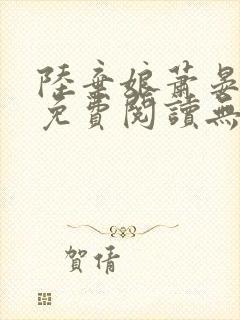 陸棄娘蕭晏
免費閱讀無
賀倩